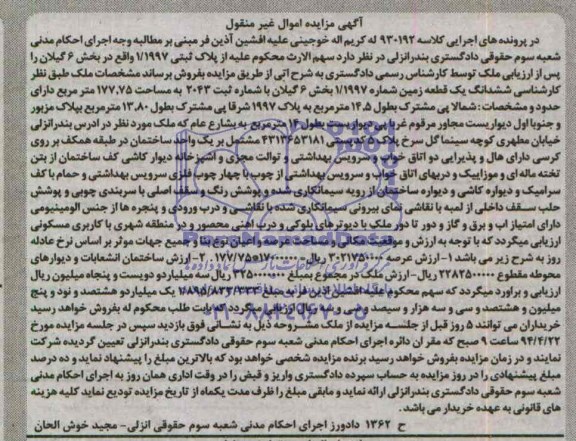 آگهی مزایده اموال غیر منقول
در پرونده های اجرایی کلاسه ۹۳۰۱۹۲ له کریم اله خوجینی علیه افشین آذین فر مبنی بر مطالبه وجه اجرای احکام مدنی
شعبه سوم حقوقی دادگستری بندرانزلی در نظر دارد سهم الارث محکوم علیه از پلاک ثبتی ۱/۱۹۹۷ واقع در بخش ۶ گیلان را
پس از ارزیابی ملک توسط کارشناس رسمی دادگستری به شرح آتی از طریق مزایده بفروش برساند مشخصات ملک طبق نظر
کارشناسی ششدانگ یک قطعه زمین شماره ۱/۱۹۹۷ بخش ۶ گیلان با شماره ثبت ۲۰۴۳ به مساحت ۱۷۷.۷۵ متر مربع دارای
حدود و مشخصات : شمالا پی مشترک بطول ۱۴.۵ مترمربع به پلاک ۱۹۹۷ شرقا پی مشترک بطول ۱۳.۸۰ مترمربع بپلاک مزبور
و جنوبا اول دیواریست مجاور مرقوم غربا دیواریست بطول ۱۴ مترمربع به بشارع عام که ملک مورد نظر در ادرس بندرانزلی
خیابان مطهری کوچه سینما گل سرخ پلاک کدپستی ۴۳۱۳۶۵۳۱۸۱ مشتمل بر یک واحد ساختمان در طبقه همکف بر روی
کرسی دارای هال و پذیرایی دو اتاق خواب و سرویس بهداشتی و توالت مجزی و آشپزخانه دیوار کاشی کف ساختمان از بتن
تخته ماله ای و موزاییک و دربهای اتاق خواب و سرویس بهداشتی از چوب با چهار چوب فلزی سرویس بهداشتی و حمام با کف
سرامیک و دیواره کاشی و دیواره ساختمان از رویه سیمانکاری شده و پوشش رنگ و سقف اصلی با سربندی چوبی و پوشش
حلب سقف داخلی از لمبه با نقاشی نمای بیرونی سیمانکاری شده با نقاشی و درب ورودی و پنجره ها از جنس الومینیومی
دارای امتیاز اب و برق و گاز و دور تا دور ملک با دیوترهای بلوکی و درب اهنی محصور و در منطقه شهری با کاربری مسکونی
ارزیابی میگردد که با توجه به ارزش و موقعیت مکان و مساحت عرصه واعیان نوع بنا و جمیع جهات موثر بر اساس نرخ عادله
روز به شرح زیر می باشد ۱- ارزش عرصه ریال ۲- ارزش ساختمان انشعابات و دیوارهای
محوطه مقطوع ۲۲۸۲۵۰۰۰۰ ریال- ارزش ملک در مجموع بمبلغ ریال سه میلیاردو دویست و پنجاه میلیون ریال
ارزیابی و براورد میگردد که سهم محکوم علیه افشین آذین فر به مبلغ ۱/۸۹۵/۸۳۳/۳۳۳ یک میلیاردو هشتصد و نود و پنج
میلیون و هشتصد و سی و سه هزار و سیصد و سی و سه ریال ارزیابی میگردد که بابت طلب محکوم له بفروش خواهد رسید
خریداران می توانند ۵ روز قبل از جلسه مزایده از ملک مشروحه ذیل به نشانی فوق بازدید سپس در جلسه مزایده مورخ
۹۴/۴/۲۲ ساعت ۹ صبح که مقر ان دائره اجرای احکام مدنی شعبه سوم حقوقی دادگستری بندرانزلی تعیین گردیده شرکت
نمایند و در زمان مزایده بفروش خواهد رسید برنده مزایده شخصی خواهد بود که بالاترین مبلغ را پیشنهاد نماید و ده درصد
مبلغ پیشنهادی را در روز مزایده به حساب سپرده دادگستری واریز و قبض را در وقت اداری همان روز به اجرای احکام مدنی
شعبه سوم حقوقی دادگستری بندرانزلی ارائه نماید و مابقی مبلغ را ظرف مدت یکماه از تاریخ مزایده تودیع نماید کلیه هزینه
های قانونی به عهده خریدار می باشد .
ح ۱۳۶۲ دادورز اجرای احکام مدنی شعبه سوم حقوقی انزلی- مجید خوش الحان